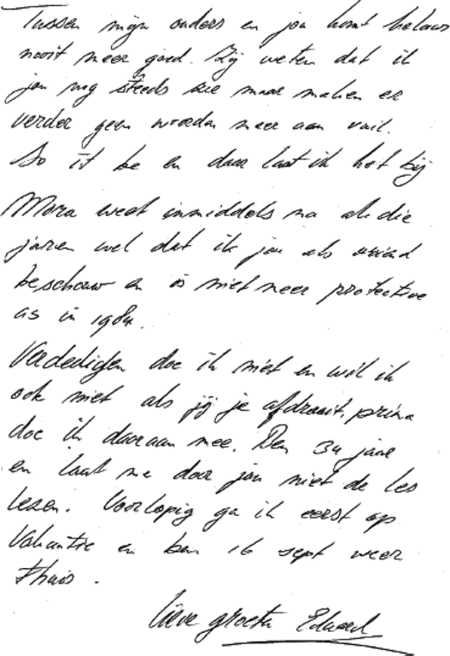 Tussen mijn ouders en jou komt helaas
nooit meer goed. Zij weten dat ik
jou nog steeds zie maar maken er
verder geen woorden meer aan vuil.
So it be en daar laat ik het bij
Mora weet inmiddels na al die
jaren wel dat ik jou als vriend
beschouw en is niet meer protective
as in 1984.
Verdedigen doe ik niet en wil ik
ook niet als jij je afdraait, prima
doe ik daaraan mee. Ben 34 jaar
en laat me door jou niet de les
lezen. Voorlopig ga ik eerst op
Vakantie en ben 16 sept weer
thuis.
lieve groeten Eduard